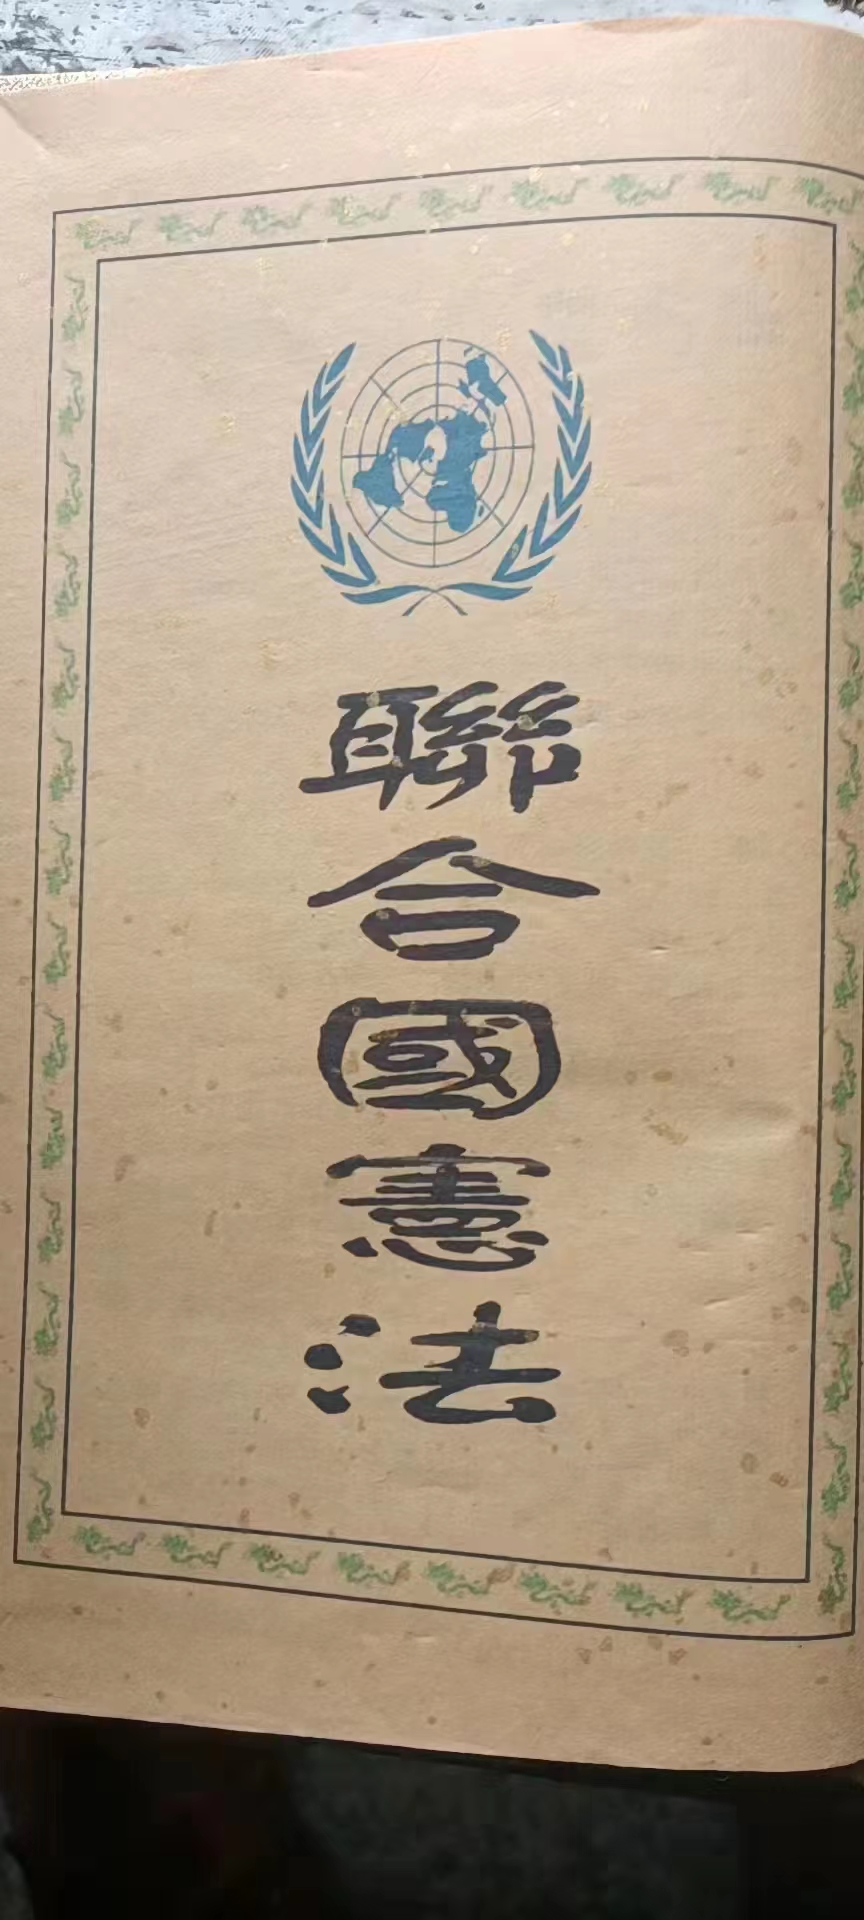 聯合國憲法